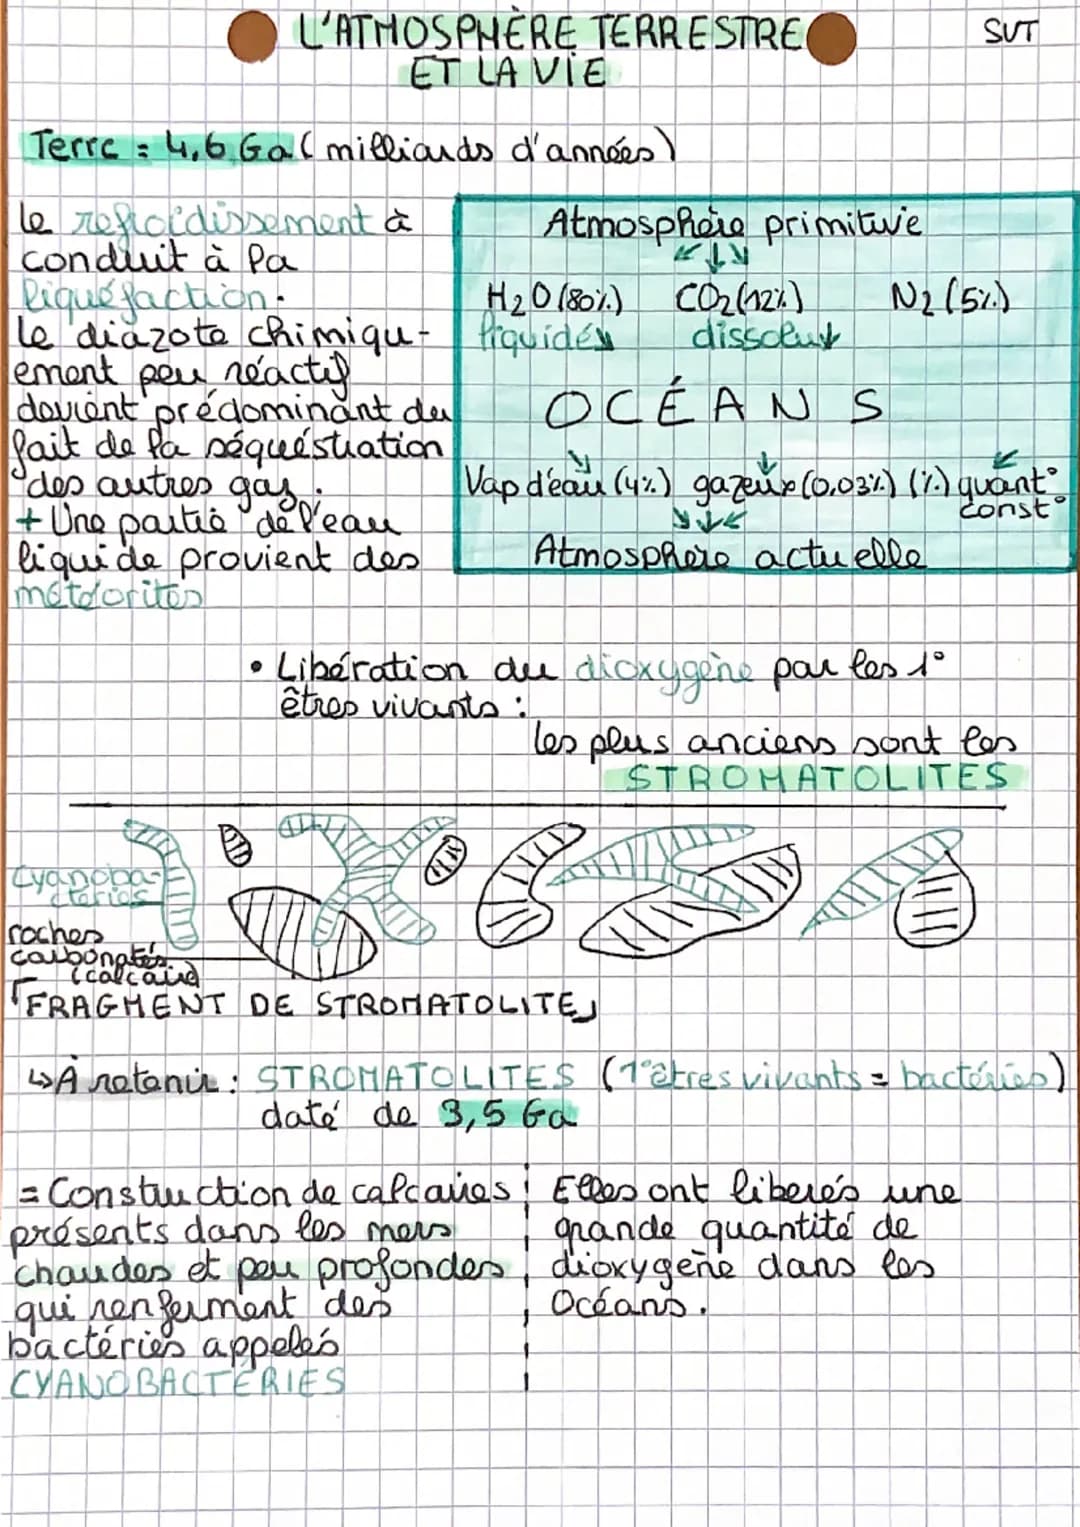 L'ATMOSPHÈRE TERRESTRE
ET LA VIE
SVT
Terre = 4,6 Ga (milliards d'années)
le refroidissement à
conduit à la
liquéfaction.
le diazote chimiqu-
ement peu réactif
devient prédominant du
fait de la séquéstration
des autres gaz.
+ Une partie de l'eau
liquide provient des
météorites
Atmosphère primitive
H2O (80%) CO2 (12%) N2 (5%)
liquidés dissout
OCÉANS
Vap d'eau (4%) gazeux (0,03%) (%) quant°
const°
Atmosphère actuelle
• Libération du dioxygène par les 1°
êtres vivants :
les plus anciens sont les
STROMATOLITES
Cyanoba-
ctéries
roches
carbonatés
(calcaire)
「FRAGMENT DE STROMATOLITE」
↳ À retenir : STROMATOLITES (1° êtres vivants = bactéries)
daté de 3,5 Ga
= Construction de calcaires
présents dans les mers
chaudes et peu profondes
qui renferment des
bactéries appelés
CYANOBACTÉRIES
Elles ont liberés une
grande quantité de
dioxygène dans les
Océans.